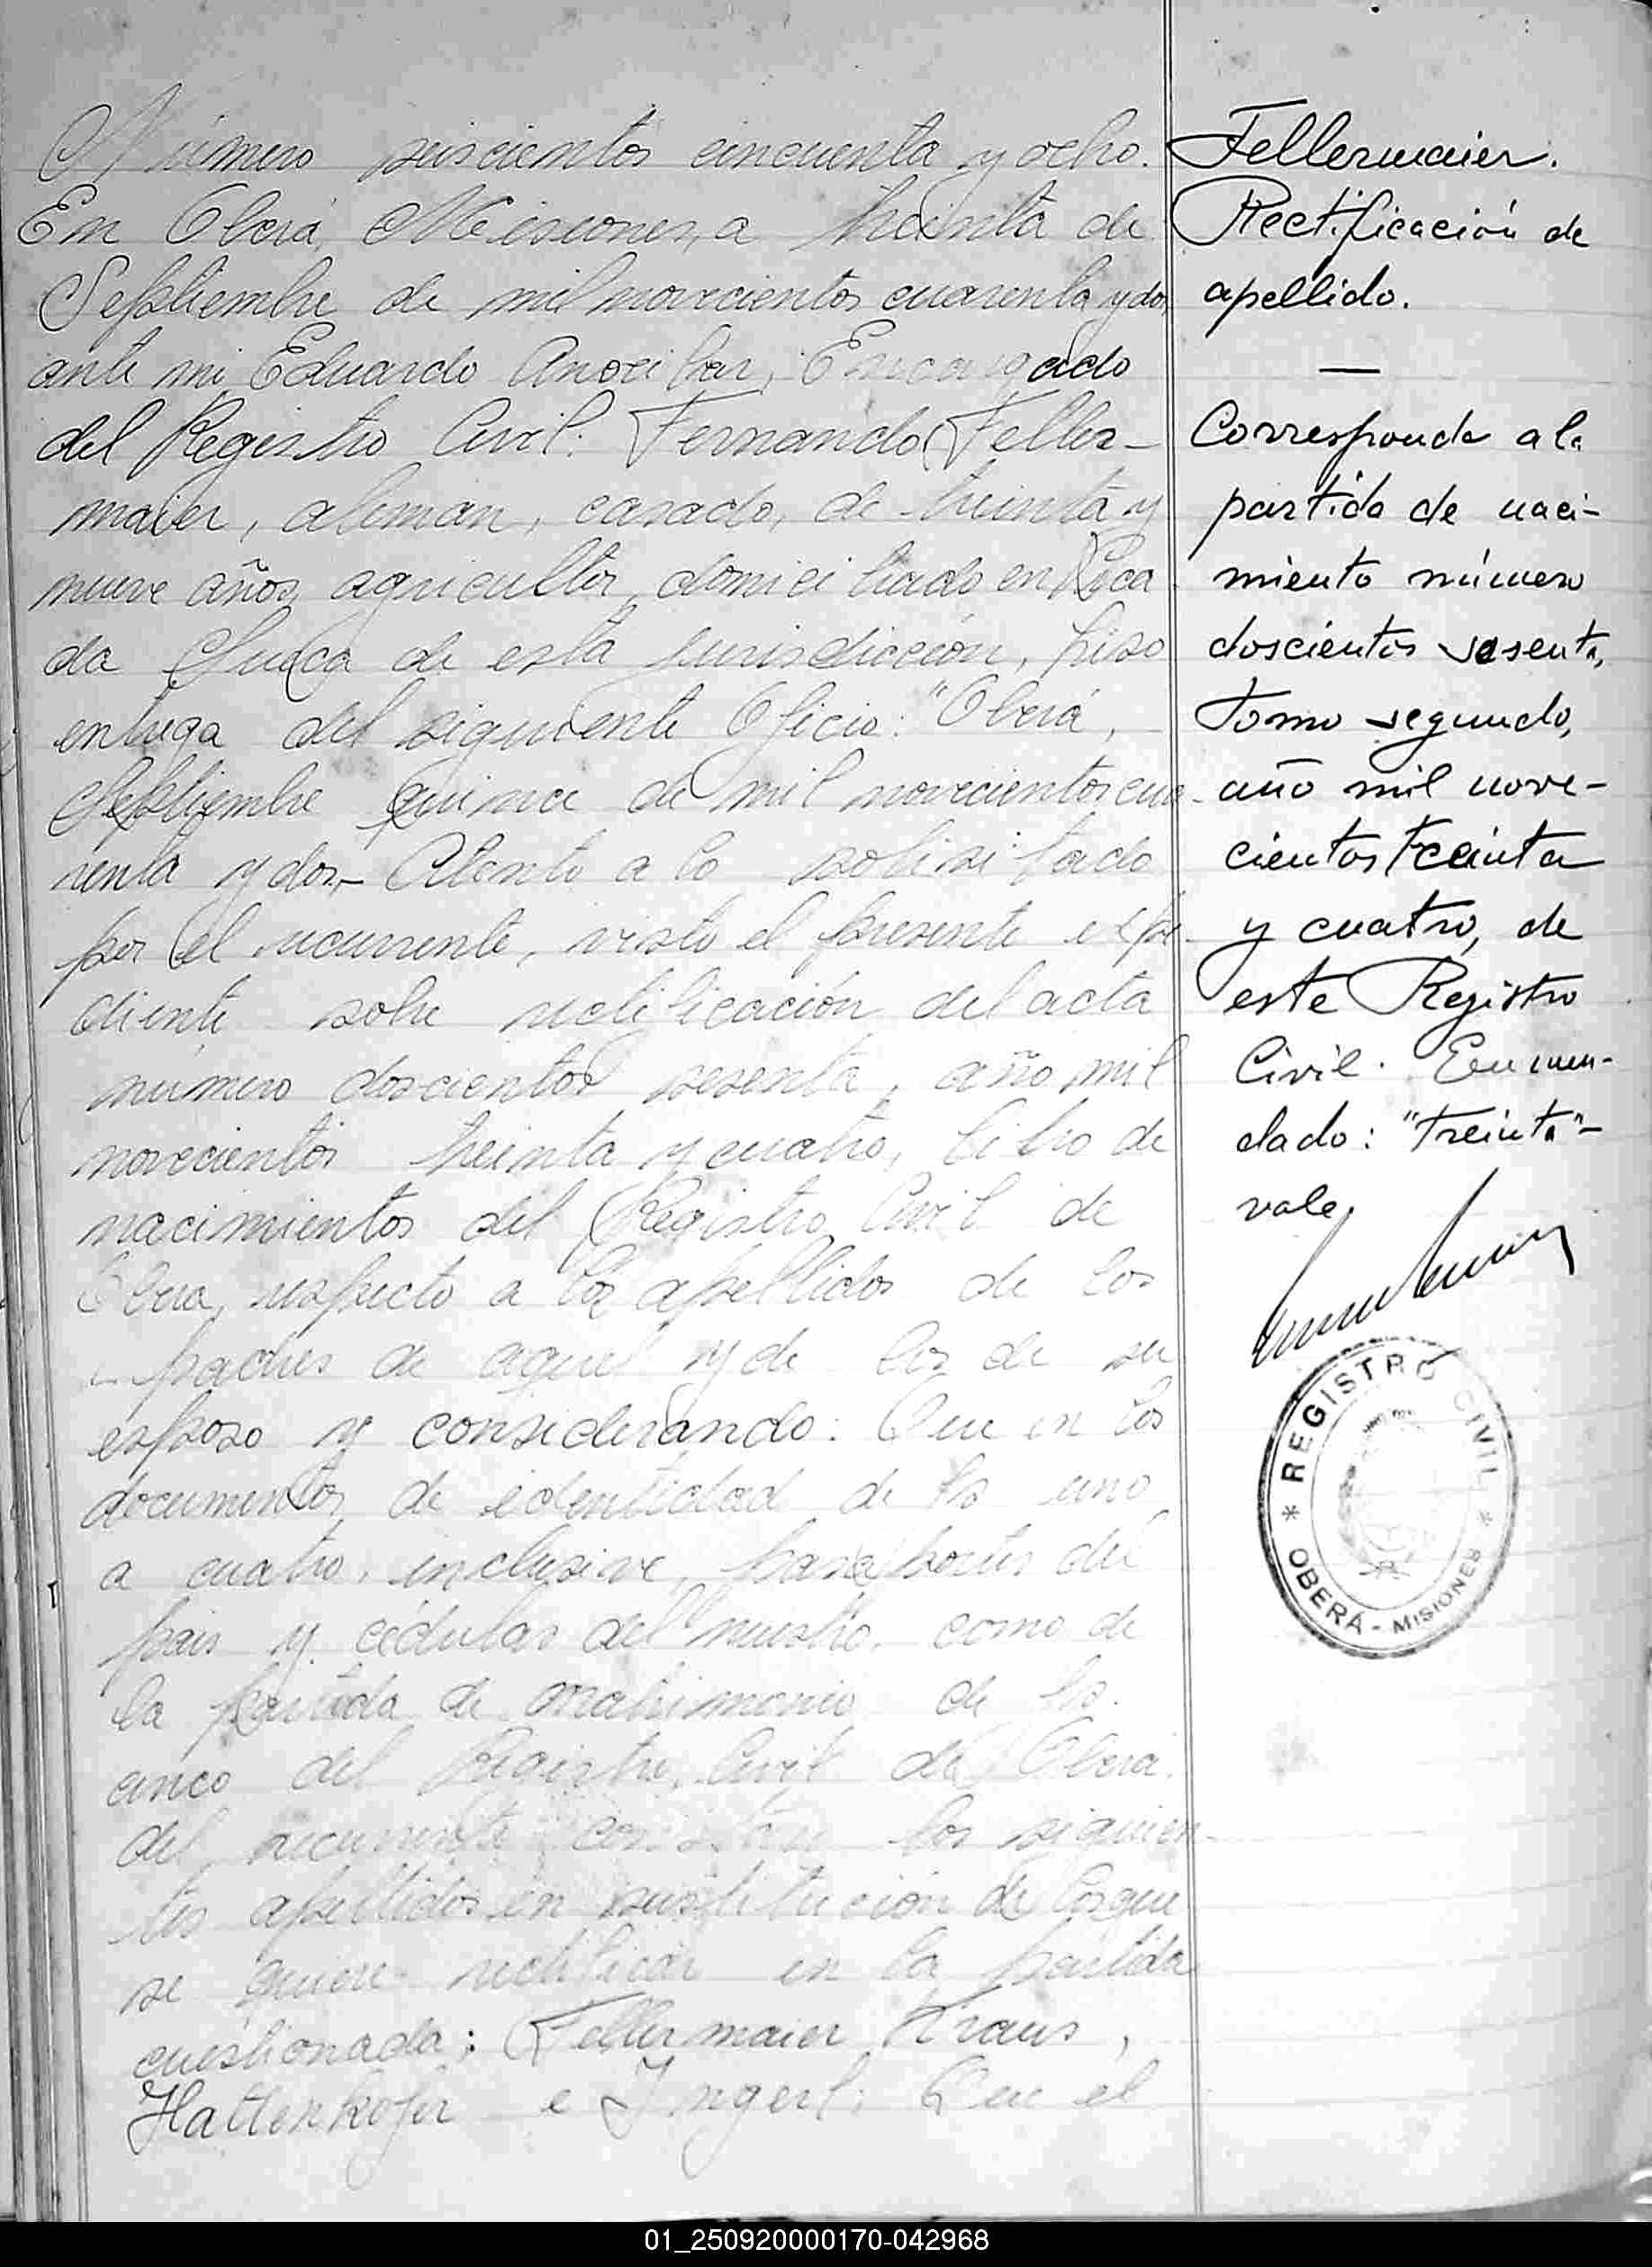 Número seiscientos cincuenta y ocho.
En Oberá, Misiones, a treinta de
Septiembre de mil novecientos cuarenta y dos
ante mi Eduardo Anocibar, Encargado
del Registro Civil: Fernando Feller-
maier, aleman, casado, de treinta y
nueve años, agricultor, domiciliado en Pica
da Sueca de esta jurisdicción, hizo
entrega del siguiente Oficio: "Oberá,
Septiembre quince de mil novecientos cua-
renta y dos.- Atento a lo solisitado
por el recurrente, visto el presente expe-
diente sobre rectificación del acta
número doscientos sesenta, año mil
novecientos treinta y cuatro, libro de
nacimientos del Registro Civil de
Oberá, respecto a los apellidos de los
padres de aquel y de los de su
esposa y considerando: Que en los
documentos de identidad de fs uno
a cuatro, inclusive, pasaportes del
pais y cédulas del nuestro, como de
la partida de matrimonio de fs.
cinco del Registro Civil de Oberá.
del recurrente constan los siguien-
tes apellidos en sustitución de los que
se quiere rectificar en la partida
cuestionada: Fellermaier Kraus,
Hattenkofer e Ingerl; Que el
Fellermaier.
Rectificación de
apellido.
—
Corresponde a la
partida de naci-
miento número
doscientos sesenta,
tomo segundo,
año mil nove-
cientos treinta
y cuatro, de
este Registro
Civil. Enmen-
dado: "treinta"-
vale.
REGISTRO CIVIL
* OBERÁ - MISIONES *
01_250920000170-042968